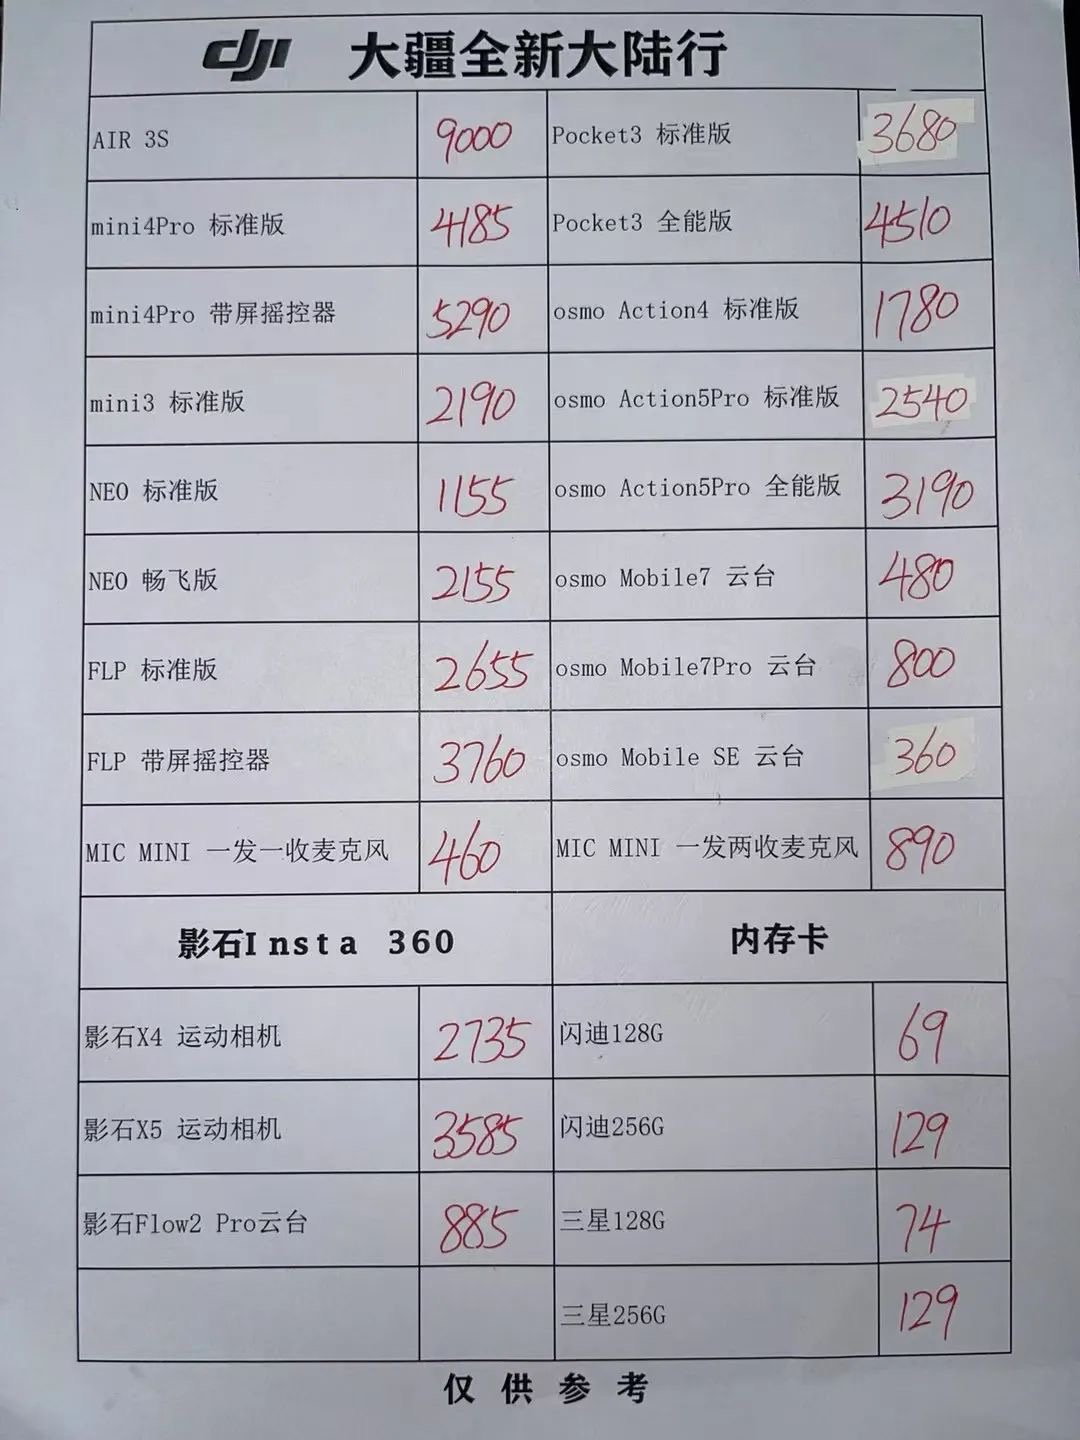 dji 大疆全新大陆行
AIR 3S 9000 Pocket3 标准版 3680
mini4Pro 标准版 4185 Pocket3 全能版 4510
mini4Pro 带屏摇控器 5290 osmo Action4 标准版 1780
mini3 标准版 2190 osmo Action5Pro 标准版 2540
NEO 标准版 1155 osmo Action5Pro 全能版 3190
NEO 畅飞版 2155 osmo Mobile7 云台 480
FLP 标准版 2655 osmo Mobile7Pro 云台 800
FLP 带屏摇控器 3760 osmo Mobile SE 云台 360
MIC MINI 一发一收麦克风 460 MIC MINI 一发两收麦克风 890
影石Insta 360 内存卡
影石X4 运动相机 2735 闪迪128G 69
影石X5 运动相机 3585 闪迪256G 129
影石Flow2 Pro云台 885 三星128G 74
三星256G 129
仅供参考